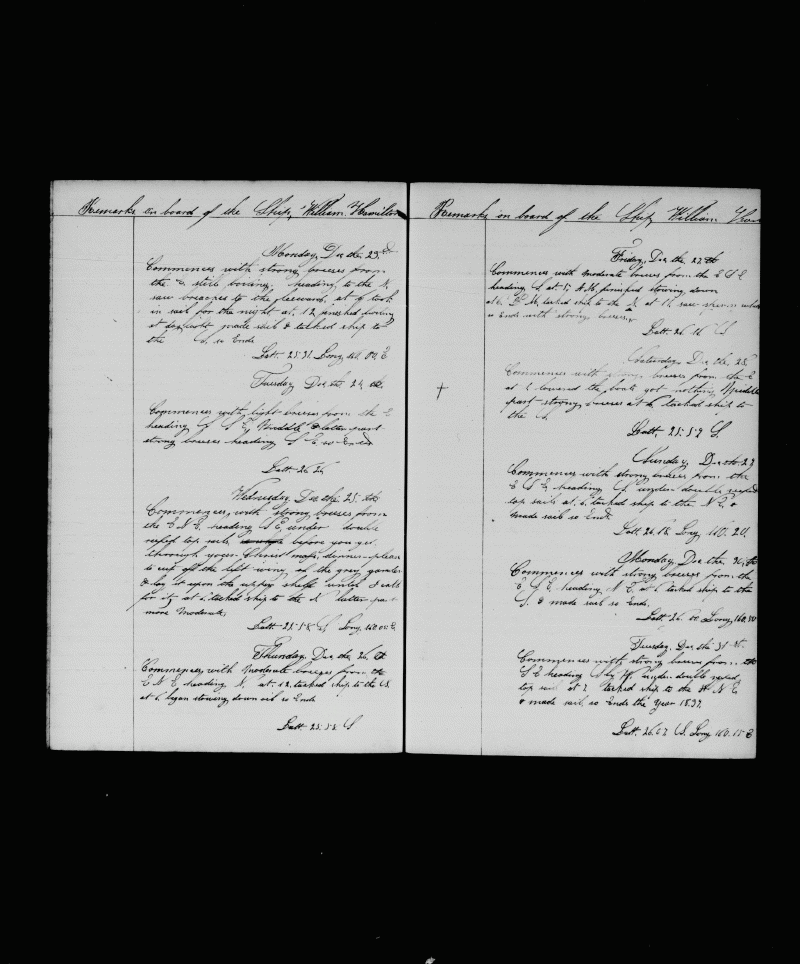 Remarks on board of the Ship, William Hamilton
Monday, Dec the 23.d
Commences with strong breezes from
the E, still boiling, heading to the N,
saw breaches to the leeward, at 7 took
in sail for the night at, 12 finished boiling
at daylight made sail & tacked ship to
the S. so Ends
Latt. 25:31. Long, 160
Tuesday Dec the 24, th
Commences with light breezes from the E
heading S. S E, Middle & latter part
strong breezes heading S E, so Ends
Latt. 26.26
Wednesday, Dec the. 25. th
Commences, with strong breezes from
the E N E, heading S E, under double
reefed top sails, before you get
through your Christ mass, dinner please
to cut off the left wing, of the grey gander
& lay it upon the upper shelf until I call
for it; at 6, tacked ship to the N latter part
more moderate;
Latt. 25:58 S Long, 160.00 E
Thursday Dec the, 26, th
Commences, with moderate breezes from the
E N E heading N. at. 12. tacked ship to the S.
at 6. began stowing down oil so Ends
Latt. 25:58 S
Remarks on board of the Ship William Ham
Friday, Dec the 27. th
Commences with moderate breezes from the E S E
heading S at 5; A M, finished stowing down
at 6. P. M, tacked ship to the N, at 11, saw sperm whales
so Ends with strong breezes
Latt. 26.16 S
Saturday, Dec the 28
Commences with strong breezes from the E
at 1 lowered the boats got nothing, Middle
part strong breezes at 6, tacked ship to
the S.
Latt. 25:59 S.
Sunday, Dec the 29
Commences with strong breezes from the
E S E, heading S. under double reefed
top sails at. 6. tacked ship to the N E, &
made sail so Ends.
Latt 26.18. Long, 160. 20.
Monday Dec the, 30, th
Commences with strong, breezes from, the
E S E, heading, N E, at 6 tacked ship to the
S. & made sail so Ends.
Latt 26. Long, 160.
Tuesday, Dec the 31 st.
Commences with strong breezes from, the
S E heading under double reefed
top sail at 7 tacked ship to the N E
& made sail, so Ends the Year 1839.
Latt. 26.07 S. Long 160. 15 E